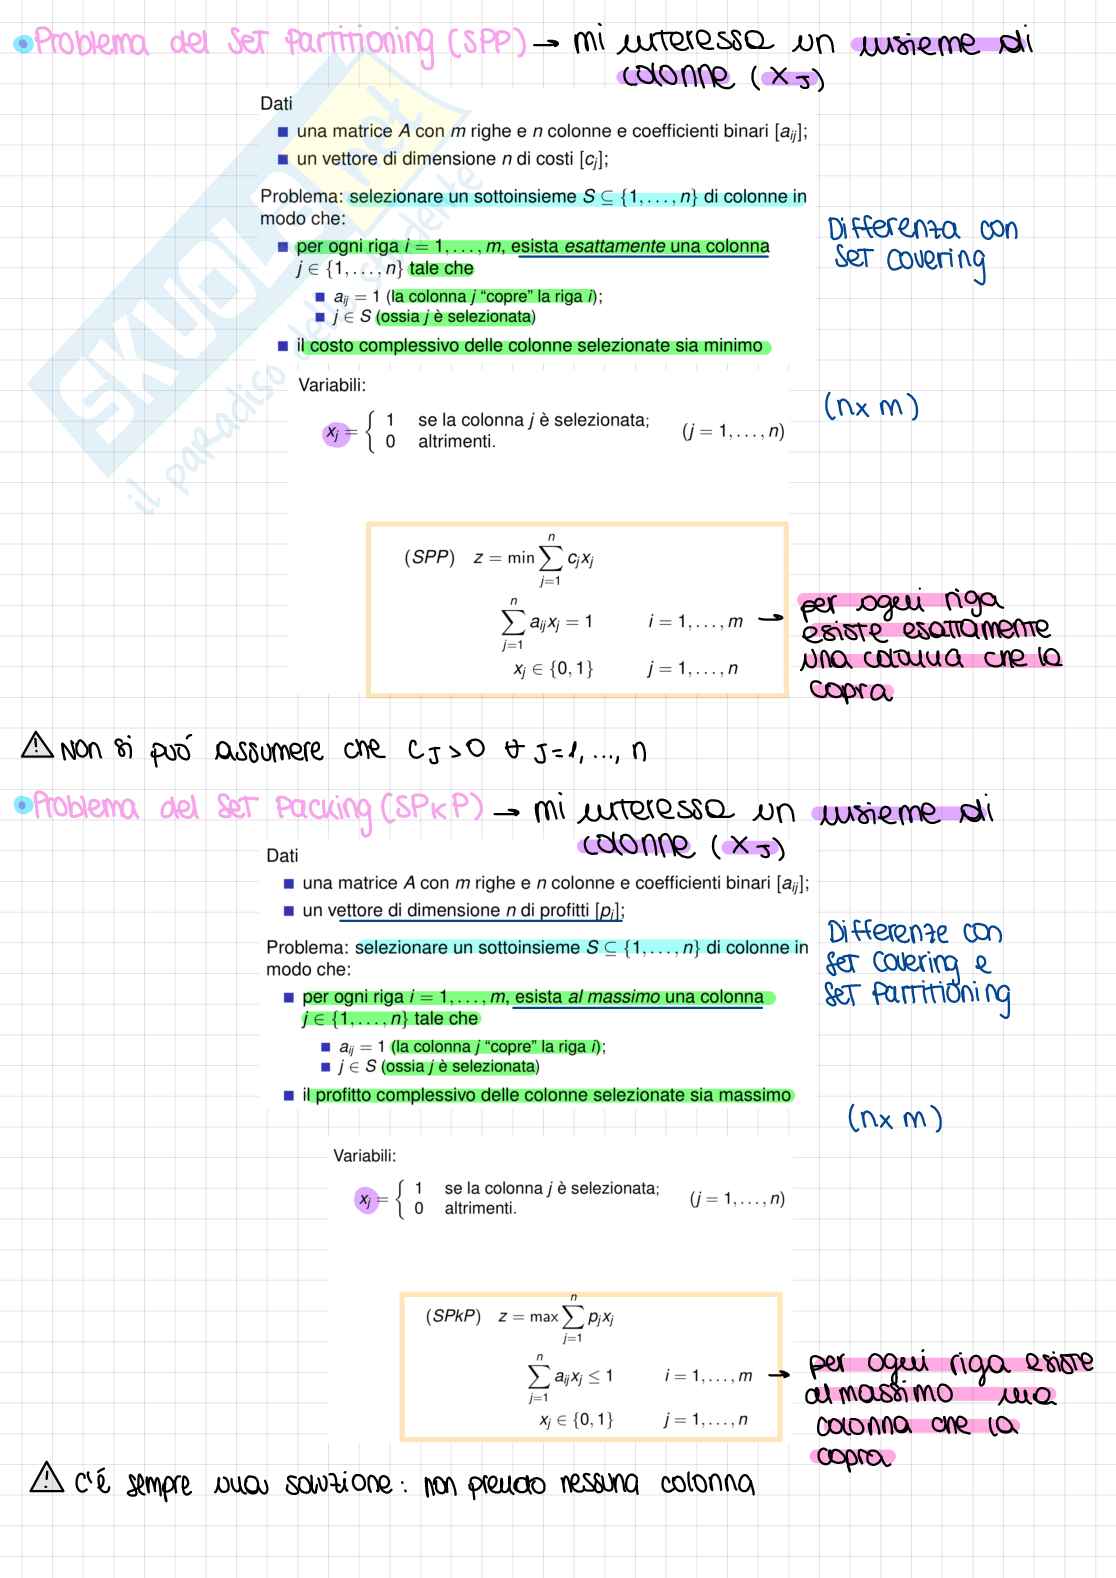 Problema del Set Partitioning (SPP) → mi interessa un insieme di
colonne (xJ)
Dati
una matrice A con m righe e n colonne e coefficienti binari [aij];
un vettore di dimensione n di costi [cj];
Problema: selezionare un sottoinsieme S ⊆ {1, . . . , n} di colonne in
modo che:
per ogni riga i = 1, . . . , m, esista esattamente una colonna
j ∈ {1, . . . , n} tale che
aij = 1 (la colonna j “copre” la riga i);
j ∈ S (ossia j è selezionata)
il costo complessivo delle colonne selezionate sia minimo
Differenza con
Set covering
SKUOLA.net
il paradiso dello studente
Variabili:
xj = { 1 se la colonna j è selezionata;
0 altrimenti.
(j = 1, . . . , n)
(n x m)
(SPP) z = min ∑ⁿj=1 cjxj
∑ⁿj=1 aijxj = 1 i = 1, . . . , m →
xj ∈ {0, 1} j = 1, . . . , n
per ogni riga
esiste esattamente
una colonna che la
copra
⚠ Non si può assumere che cJ > 0 ∀ J=1, ..., n
Problema del Set Packing (SPkP) → mi interessa un insieme di
colonne (xJ)
Dati
una matrice A con m righe e n colonne e coefficienti binari [aij];
un vettore di dimensione n di profitti [pj];
Problema: selezionare un sottoinsieme S ⊆ {1, . . . , n} di colonne in
modo che:
per ogni riga i = 1, . . . , m, esista al massimo una colonna
j ∈ {1, . . . , n} tale che
aij = 1 (la colonna j “copre” la riga i);
j ∈ S (ossia j è selezionata)
il profitto complessivo delle colonne selezionate sia massimo
Differenze con
Set Covering e
Set Partitioning
(n x m)
Variabili:
xj = { 1 se la colonna j è selezionata;
0 altrimenti.
(j = 1, . . . , n)
(SPkP) z = max ∑ⁿj=1 pjxj
∑ⁿj=1 aijxj ≤ 1 i = 1, . . . , m →
xj ∈ {0, 1} j = 1, . . . , n
per ogni riga esiste
al massimo una
colonna che la
copra
⚠ c'è sempre una soluzione: non prendo nessuna colonna